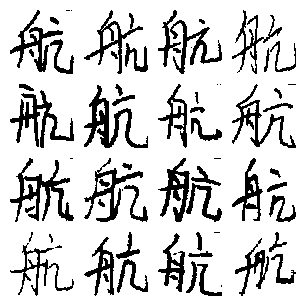 航航航航
航航航航
航航航航
航航航航